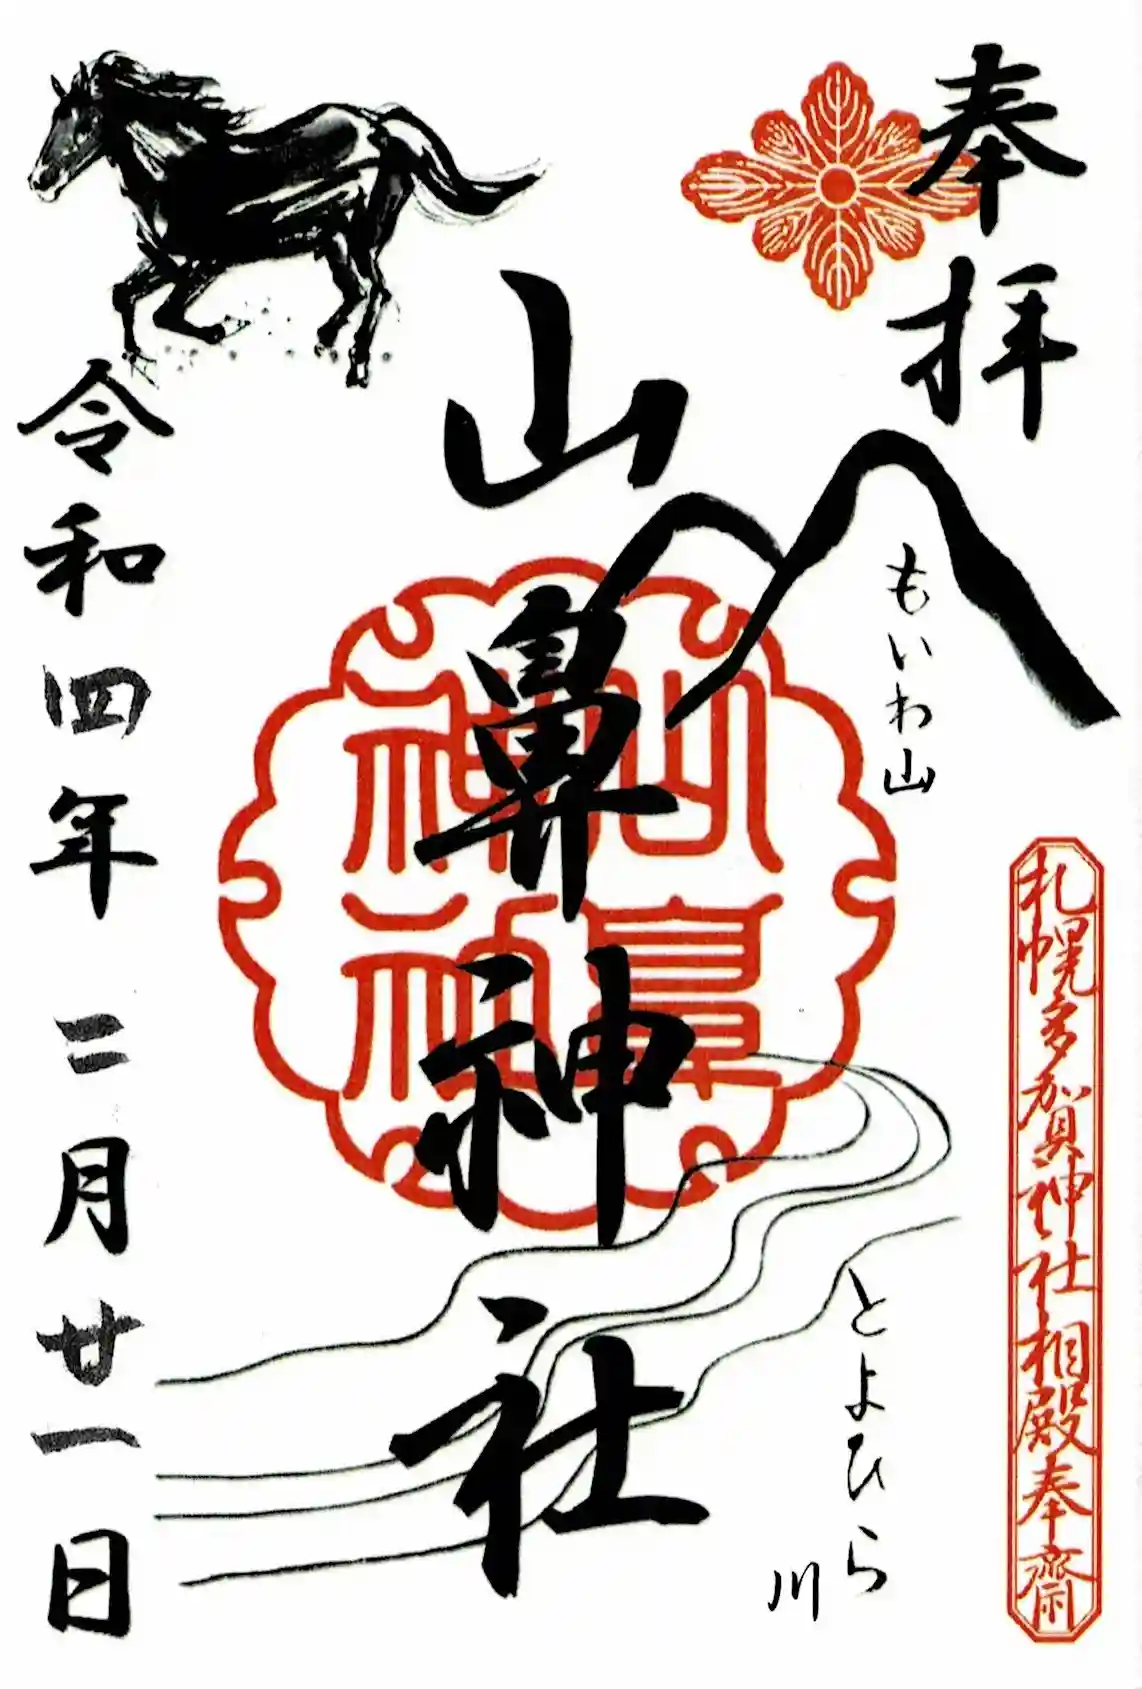 奉拝
もいわ山
札幌多賀神社相殿奉齋
とよひら川
山鼻神社
山鼻神社
令和四年二月廿一日